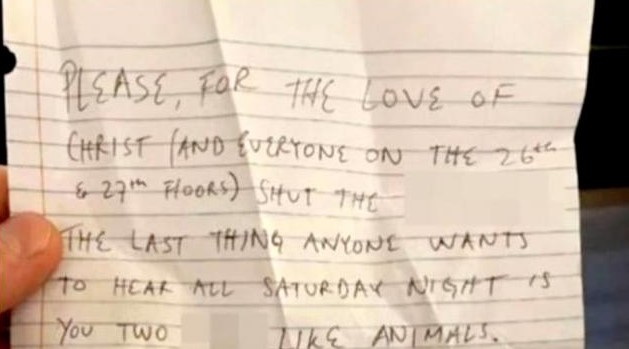 PLEASE, FOR THE LOVE OF
CHRIST (AND EVERYONE ON THE 26th
& 27th FlOORS) SHUT THE
THE LAST THING ANYONE WANTS
TO HEAR ALL SATURDAY NIGHT IS
YOU TWO LIKE ANIMALS.